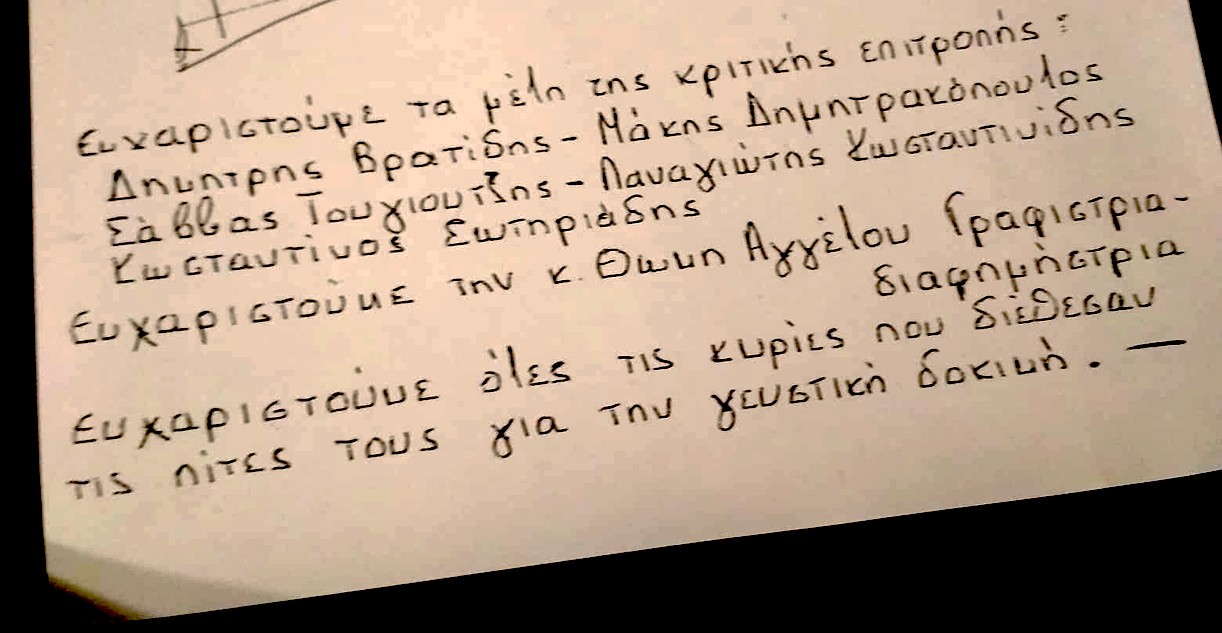 Ευχαριστούμε τα μέλη της κριτικής επιτροπής:
Δημητρης Βρατίδης - Μάκης Δημητρακόπουλος
Σάββας Τουγιουτζης - Παναγιώτης Κωσταντινίδης
Κωσταντίνος Σωτηριάδης
Ευχαριστούμε την κ. Θωμη Αγγέλου Γραφιστρια-
διαφημήστρια
Ευχαριστούμε όλες τις κυρίες που διέθεσαν
τις πίτες τους για την γευστική δοκιμή. —